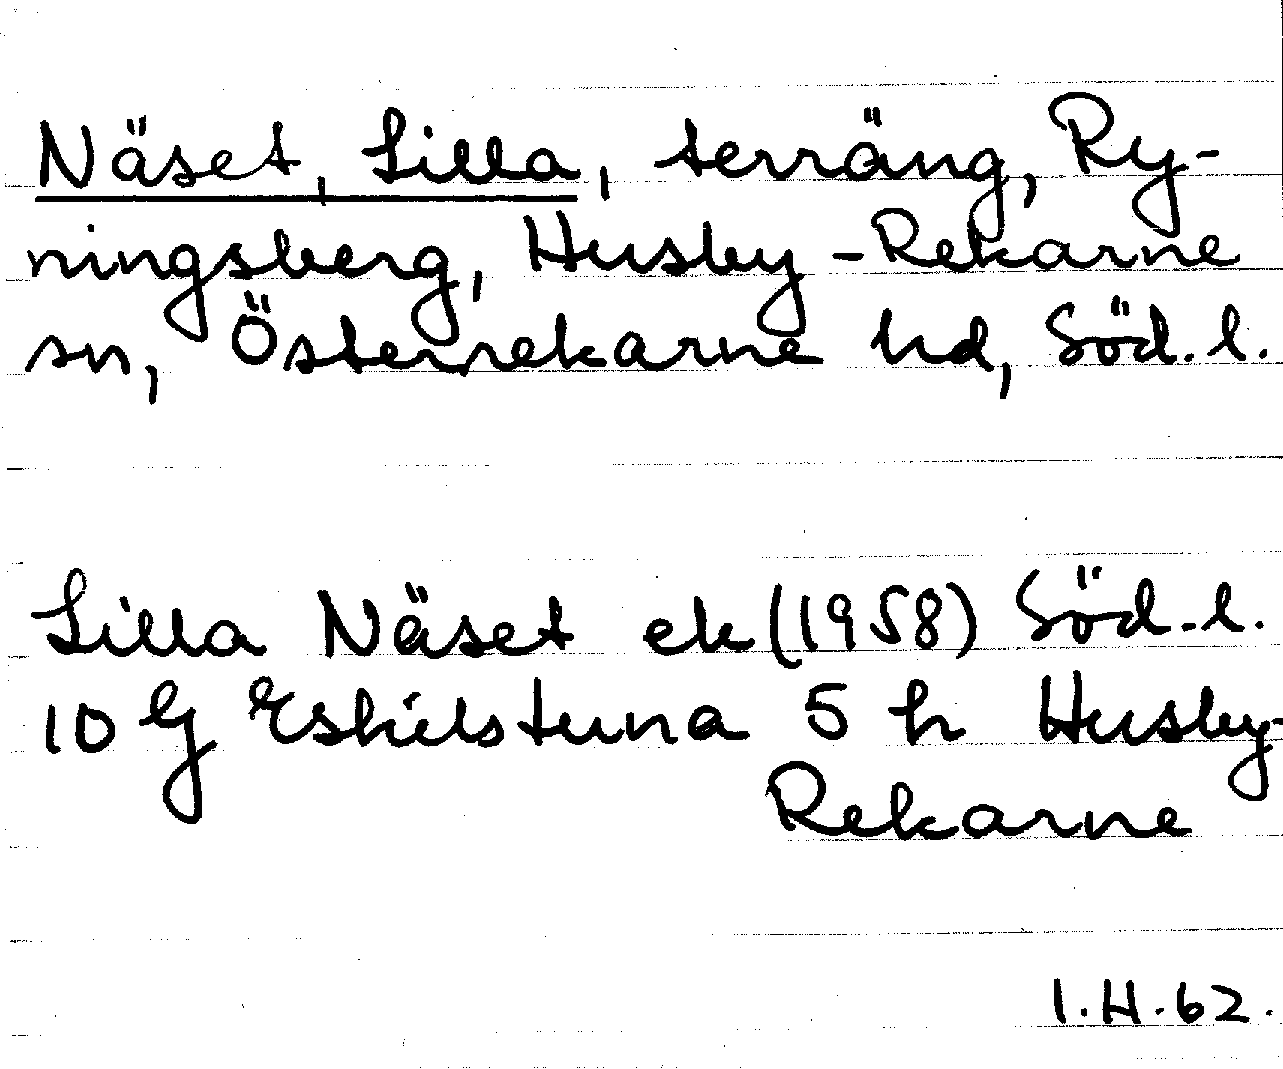 Näset, Lilla, terräng, Ry-
ningsberg, Husby-Rekarne
sn, Österrekarne hd, Söd. l.
Lilla Näset ek (1958) Söd. l.
10 G Eskilstuna 5 h Husby-
Rekarne
I.H.62.